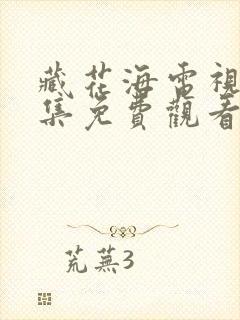 藏花海電視
集免費觀看
荒蕪3